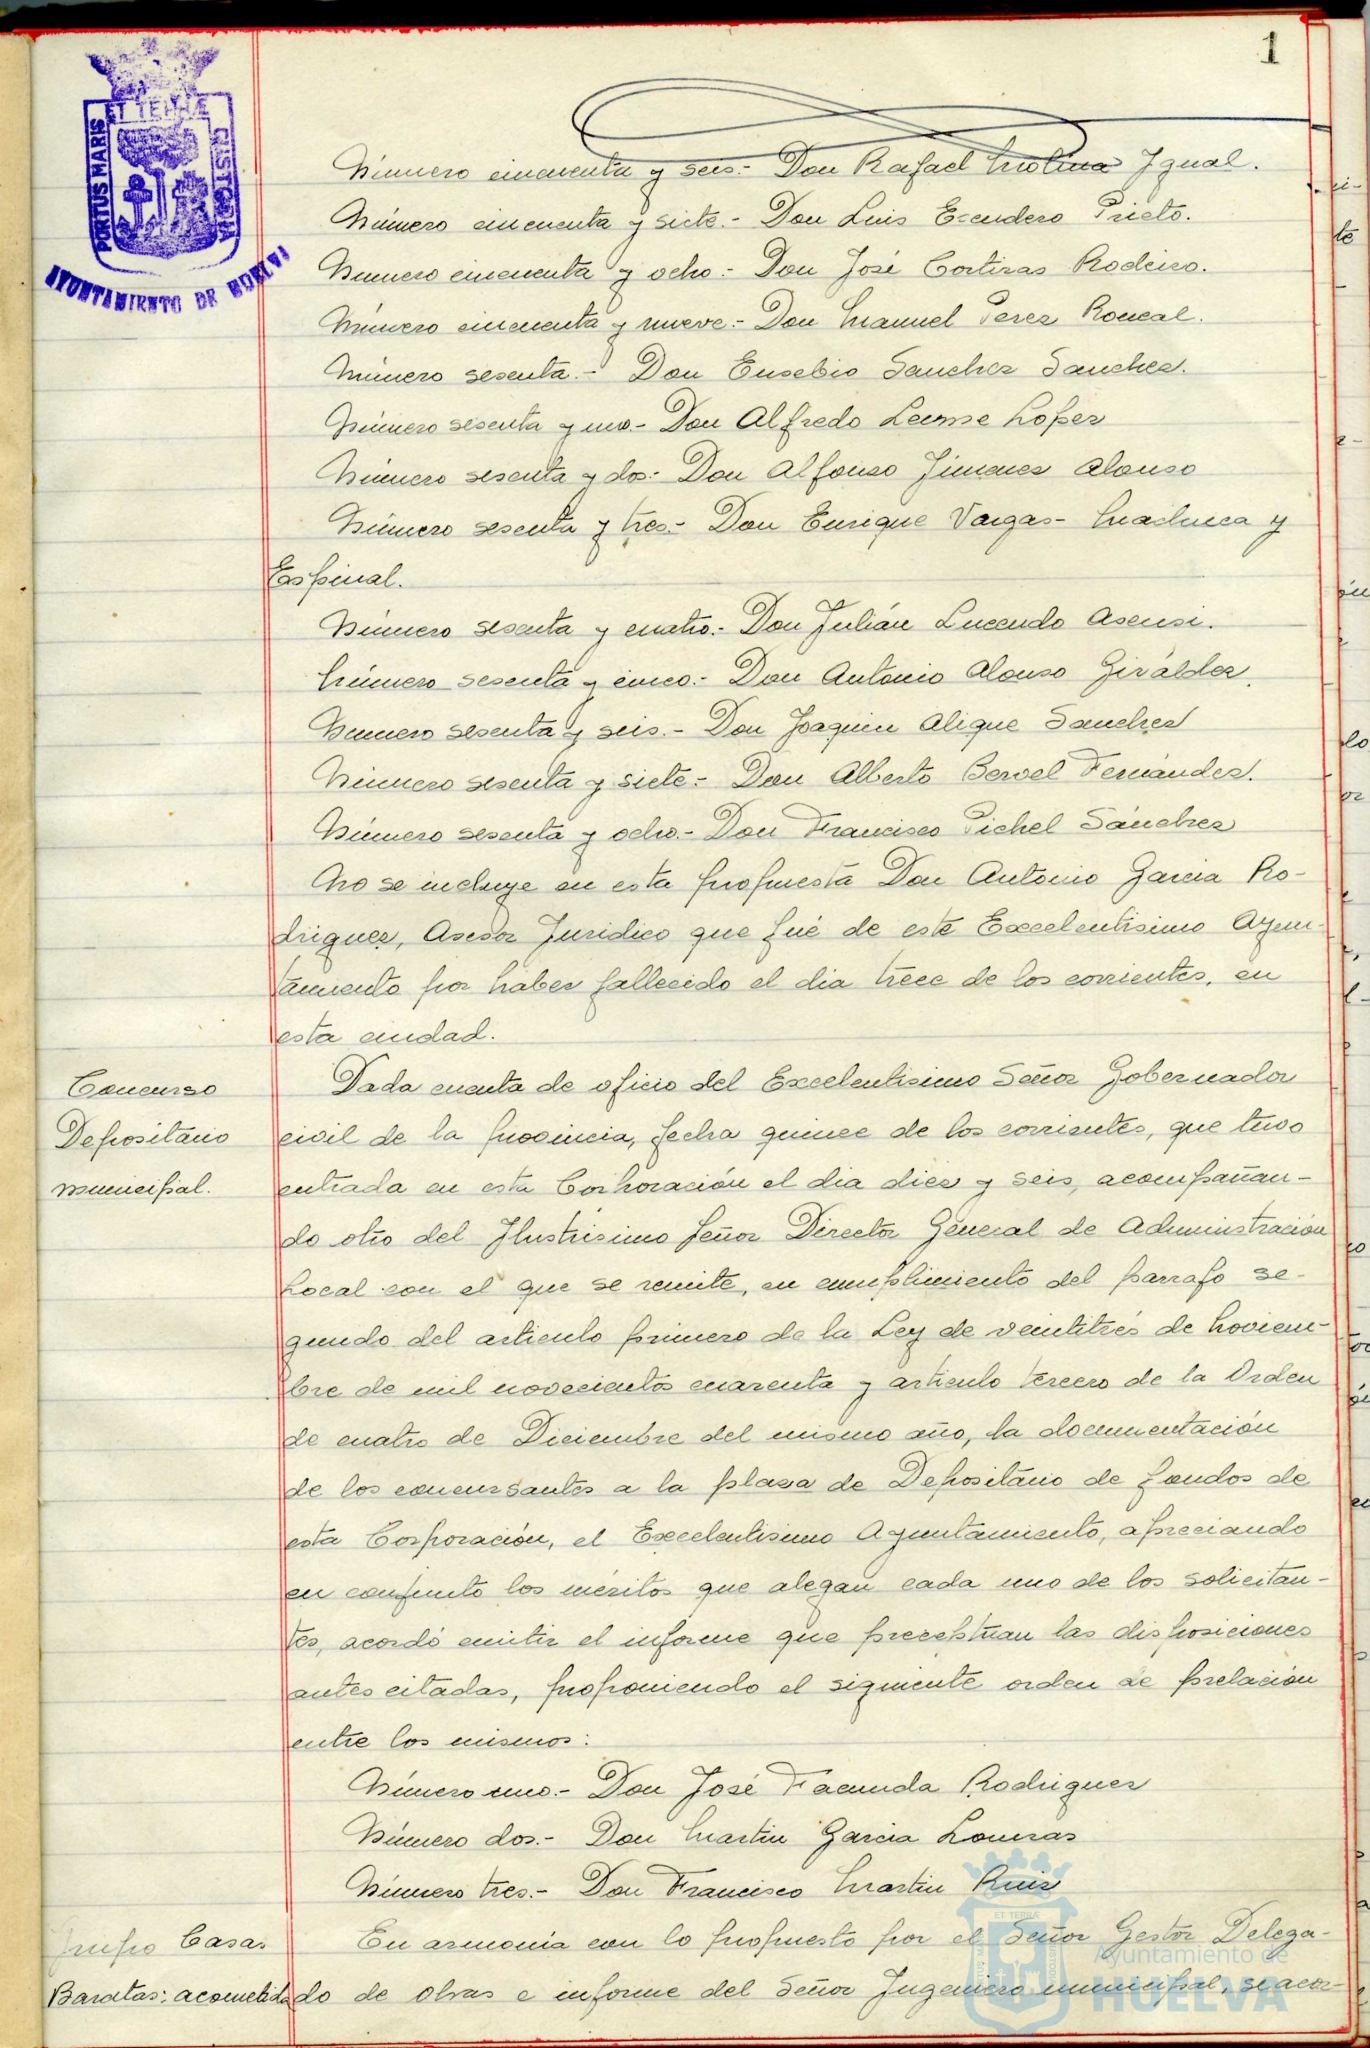 1
ET TERRÆ
PORTUS MARIS
CUSTODIA
AYUNTAMIENTO DE HUELVA
Número cincuenta y seis.- Don Rafael Molina Igual.
Número cincuenta y siete.- Don Luis Escudero Prieto.
Número cincuenta y ocho.- Don José Cortiras Rodeiro.
Número cincuenta y nueve.- Don Manuel Perez Roncal.
Número sesenta.- Don Eusebio Sanchez Sanchez.
Número sesenta y uno.- Don Alfredo Lopez
Número sesenta y dos.- Don Alfonso Jimenez Alonso
Número sesenta y tres.- Don Enrique Vargas-Machuca y
Espinal.
Número sesenta y cuatro.- Don Julián Lucendo Asensi.
Número sesenta y cinco.- Don Antonio Alonso Giráldez.
Número sesenta y seis.- Don Joaquin Alique Sanchez
Número sesenta y siete.- Don Alberto Bervel Fernández.
Número sesenta y ocho.- Don Francisco Pichel Sánchez
No se incluye en esta propuesta Don Antonio Garcia Ro-
driguez, Asesor Juridico que fué de este Excelentisimo Ayun-
tamiento por haber fallecido el dia trece de los corrientes, en
esta ciudad.
Concurso
Depositario
municipal.
Dada cuenta de oficio del Excelentisimo Señor Gobernador
civil de la provincia, fecha quince de los corrientes, que tuvo
entrada en esta Corporación el dia diez y seis, acompañan-
do otro del Ilustrisimo Señor Director General de Administración
Local con el que se remite, en cumplimiento del parrafo se-
gundo del articulo primero de la Ley de veintitrés de Noviem-
bre de mil novecientos cuarenta y articulo tercero de la Orden
de cuatro de Diciembre del mismo año, la documentación
de los concursantes a la plaza de Depositario de fondos de
esta Corporación, el Excelentisimo Ayuntamiento, apreciando
en conjunto los méritos que alegan cada uno de los solicitan-
tes, acordó emitir el informe que preceptúan las disposiciones
antes citadas, proponiendo el siguiente orden de prelación
entre los mismos:
Número uno.- Don José Facunda Rodriguez
Número dos.- Don Martin Garcia Lomas
Número tres.- Don Francisco Martin Ruiz
Grupo Casas
Baratas: acometida
En armonia con lo propuesto por el Señor Gestor Delega-
do de obras e informe del Señor Ingeniero municipal, se acor-
Ayuntamiento de
HUELVA